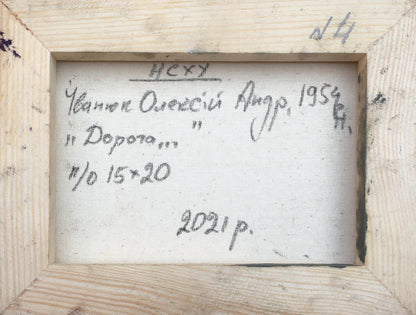 N4
НСХУ
Іванюк Олексій Андр, 1954 н.
"Дорога..."
п/о 15*20
2021 р.